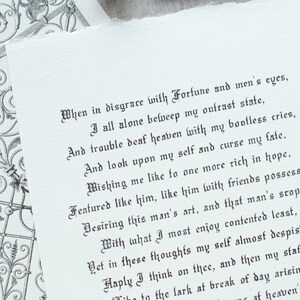 When in disgrace with Fortune and men's eyes,
I all alone beweep my outcast state,
And trouble deaf heaven with my bootless cries,
And look upon my self and curse my fate,
Wishing me like to one more rich in hope,
Featured like him, like him with friends possess
Desiring this man's art, and that man's scop
With what I most enjoy contented least,
Yet in these thoughts my self almost despis
Haply I think on thee, and then my sta
Like to the lark at break of day arisin
at heaven